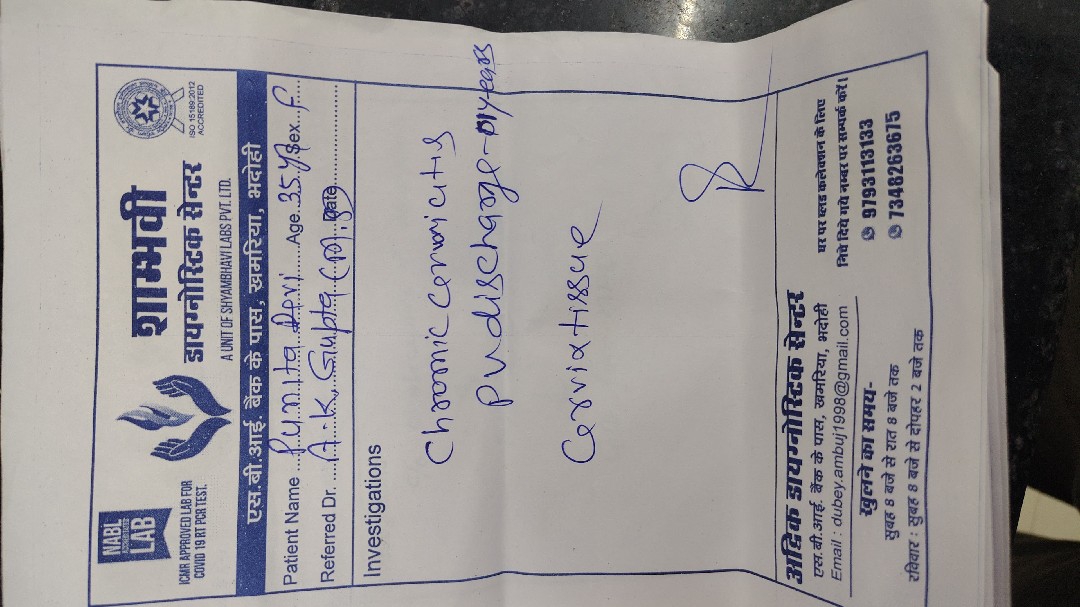 NABL
ACCREDITED
LAB
ICMR APPROVED LAB FOR
COVID 19 RT PCR TEST.
शाम्भवी
डायग्नोस्टिक सेन्टर
A UNIT OF SHYAMBHAVI LABS PVT. LTD.
ISO 15189:2012
ACCREDITED
एस.बी.आई. बैंक के पास, खमरिया, भदोही
Patient Name Punita Devi Age 35 Y Sex F
Referred Dr. A.K. Gupta Date
Investigations
Chronic cervicitis
PV discharge - 01 years
Cervix tissue
अद्रिक डायग्नोस्टिक सेन्टर
एस.बी.आई. बैंक के पास, खमरिया, भदोही
Email : dubey.ambuj1998@gmail.com
खुलने का समय-
सुबह 8 बजे से रात 8 बजे तक
रविवार : सुबह 8 बजे से दोपहर 2 बजे तक
घर पर ब्लड कलेक्शन के लिए
निचे दिये गये नम्बर पर सम्पर्क करें।
9793113133
7346263675